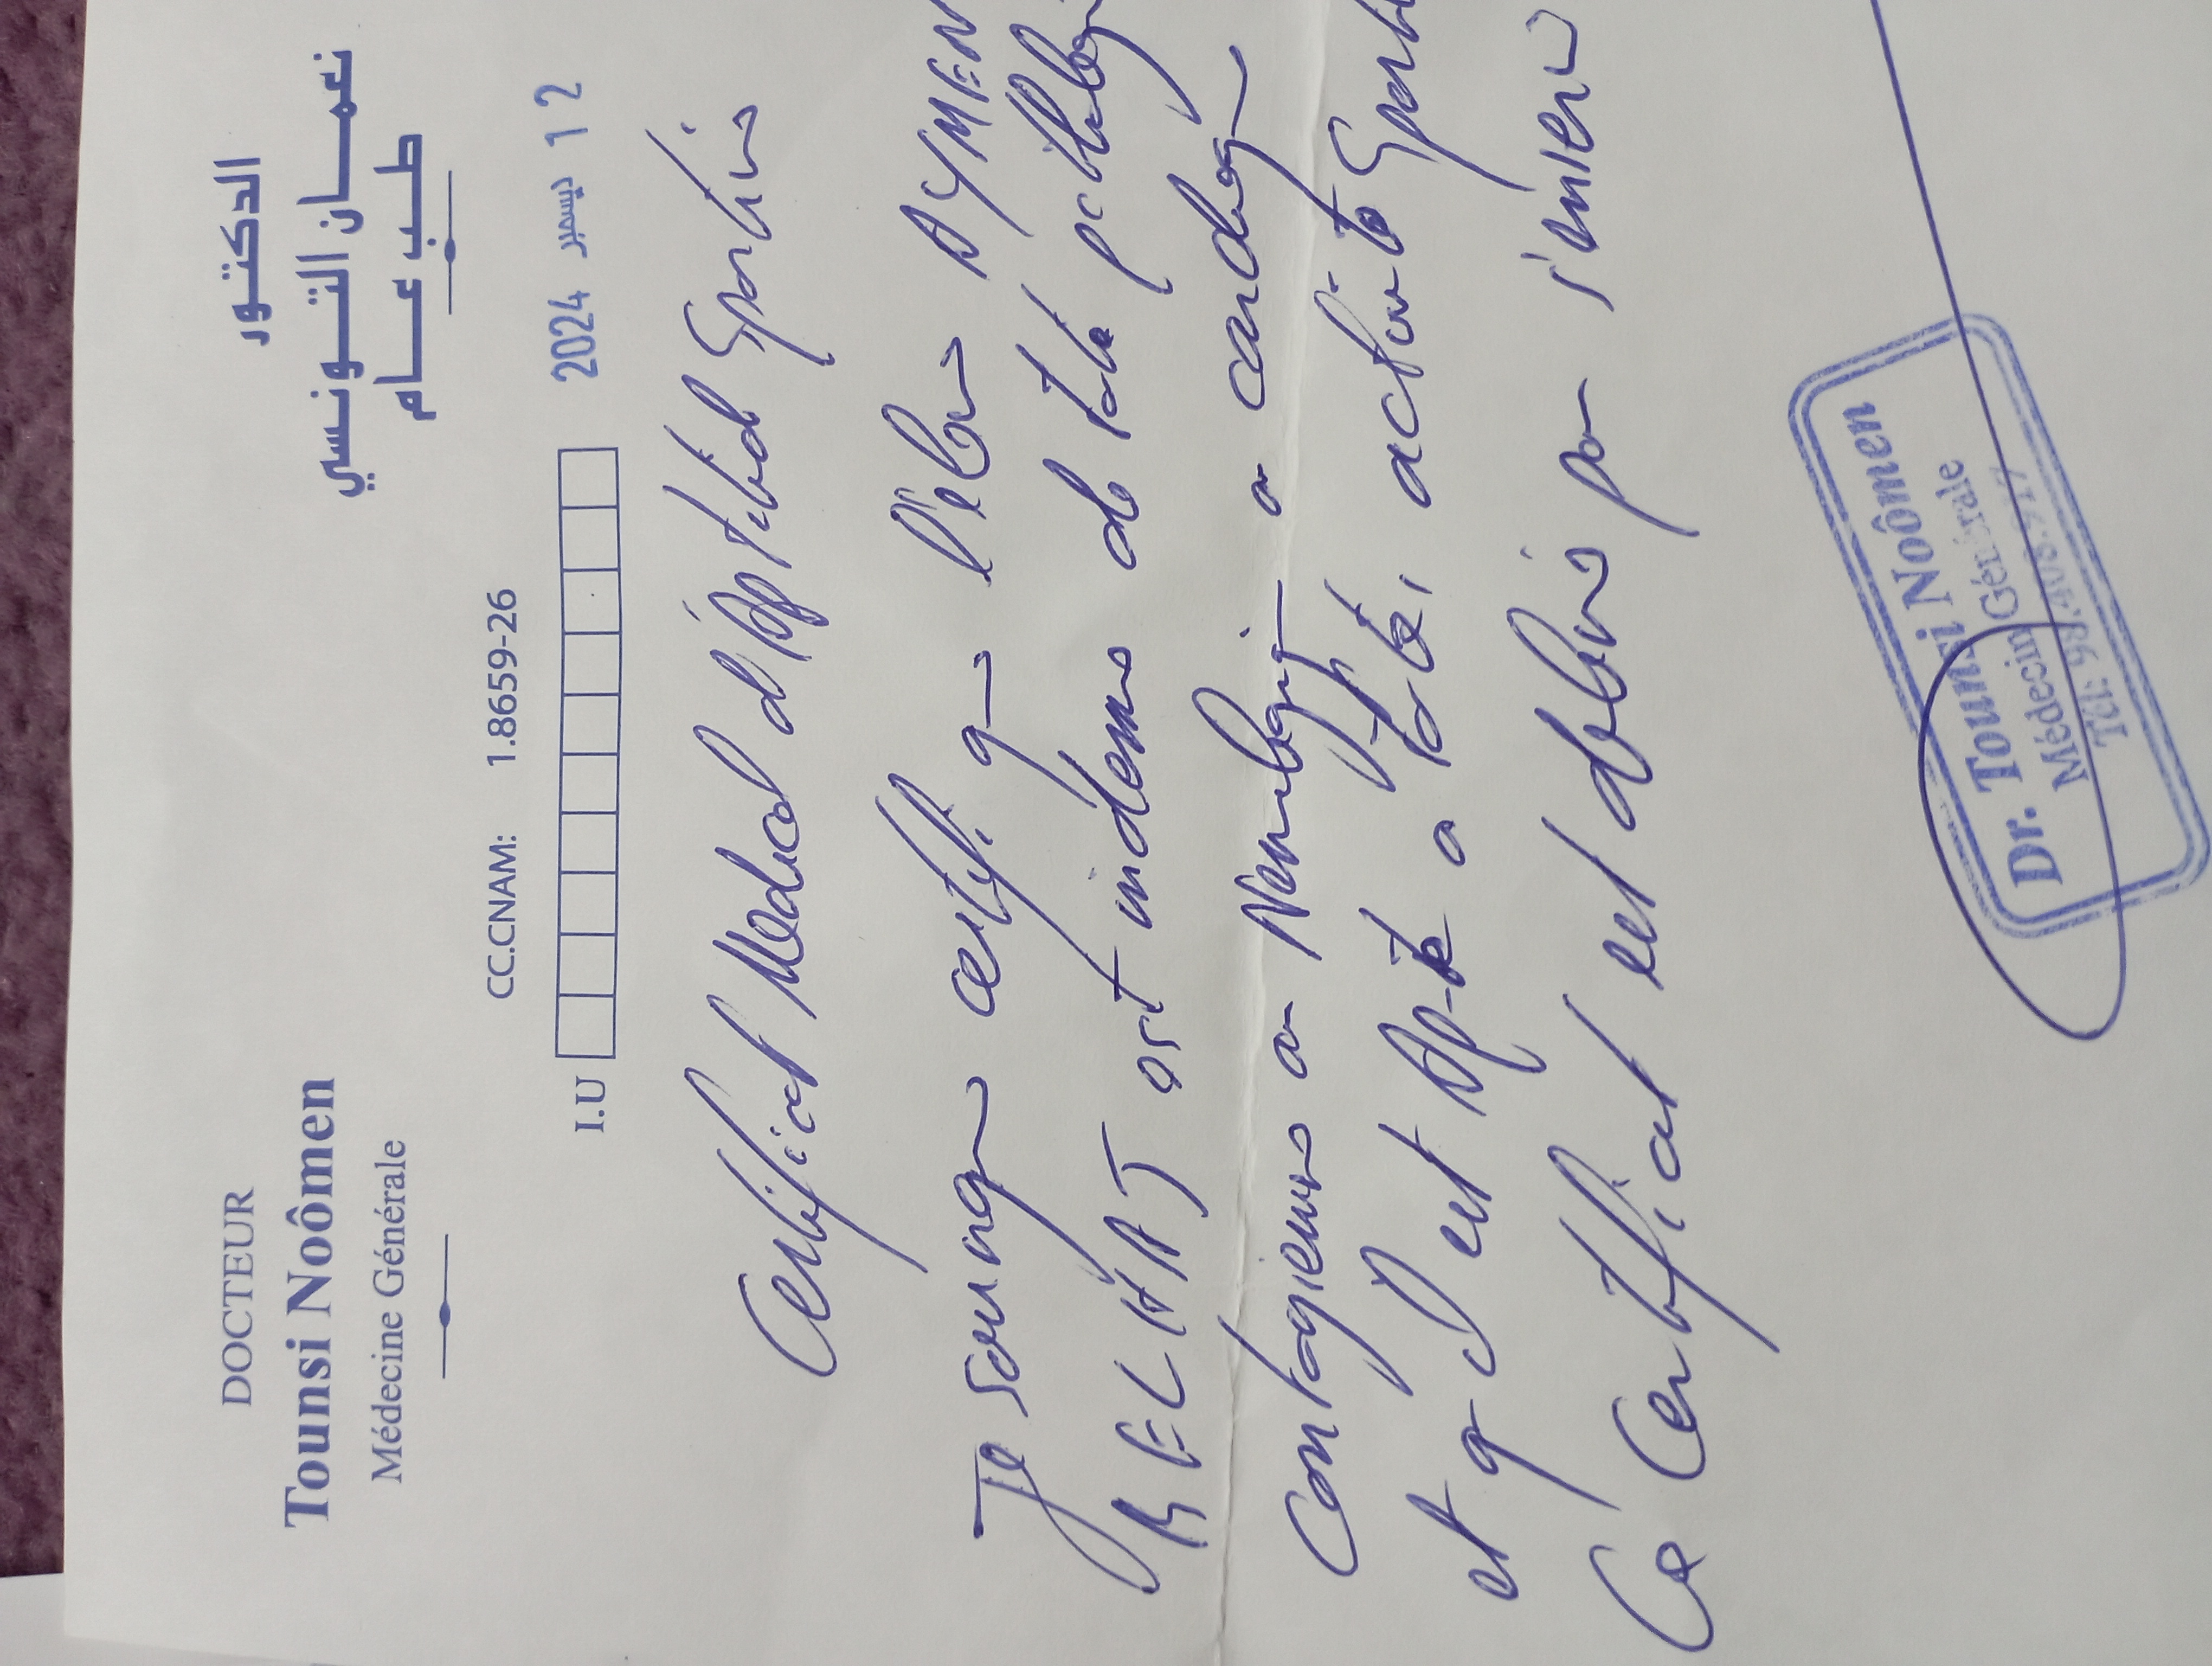 DOCTEUR
Tounsi Noômen
Médecine Générale
الدكتور
نعمان التونسي
طب عام
CC.CNAM: 1.8659-26
I.U
2024 ديسمبر 1 2
Certificat Medical d'Aptitude Sportive
Je soussigné certifie que l'élève AYMEN
BELHAJ est indemne de toute pathologie
Contagieuse ou Neurologique ou cardiaq
et qu'il est Apte à toute activité Sportive
Ce Certificat est délivré pour servir
Dr. Tounsi Noômen
Médecine Générale
Tél: 98.408.917